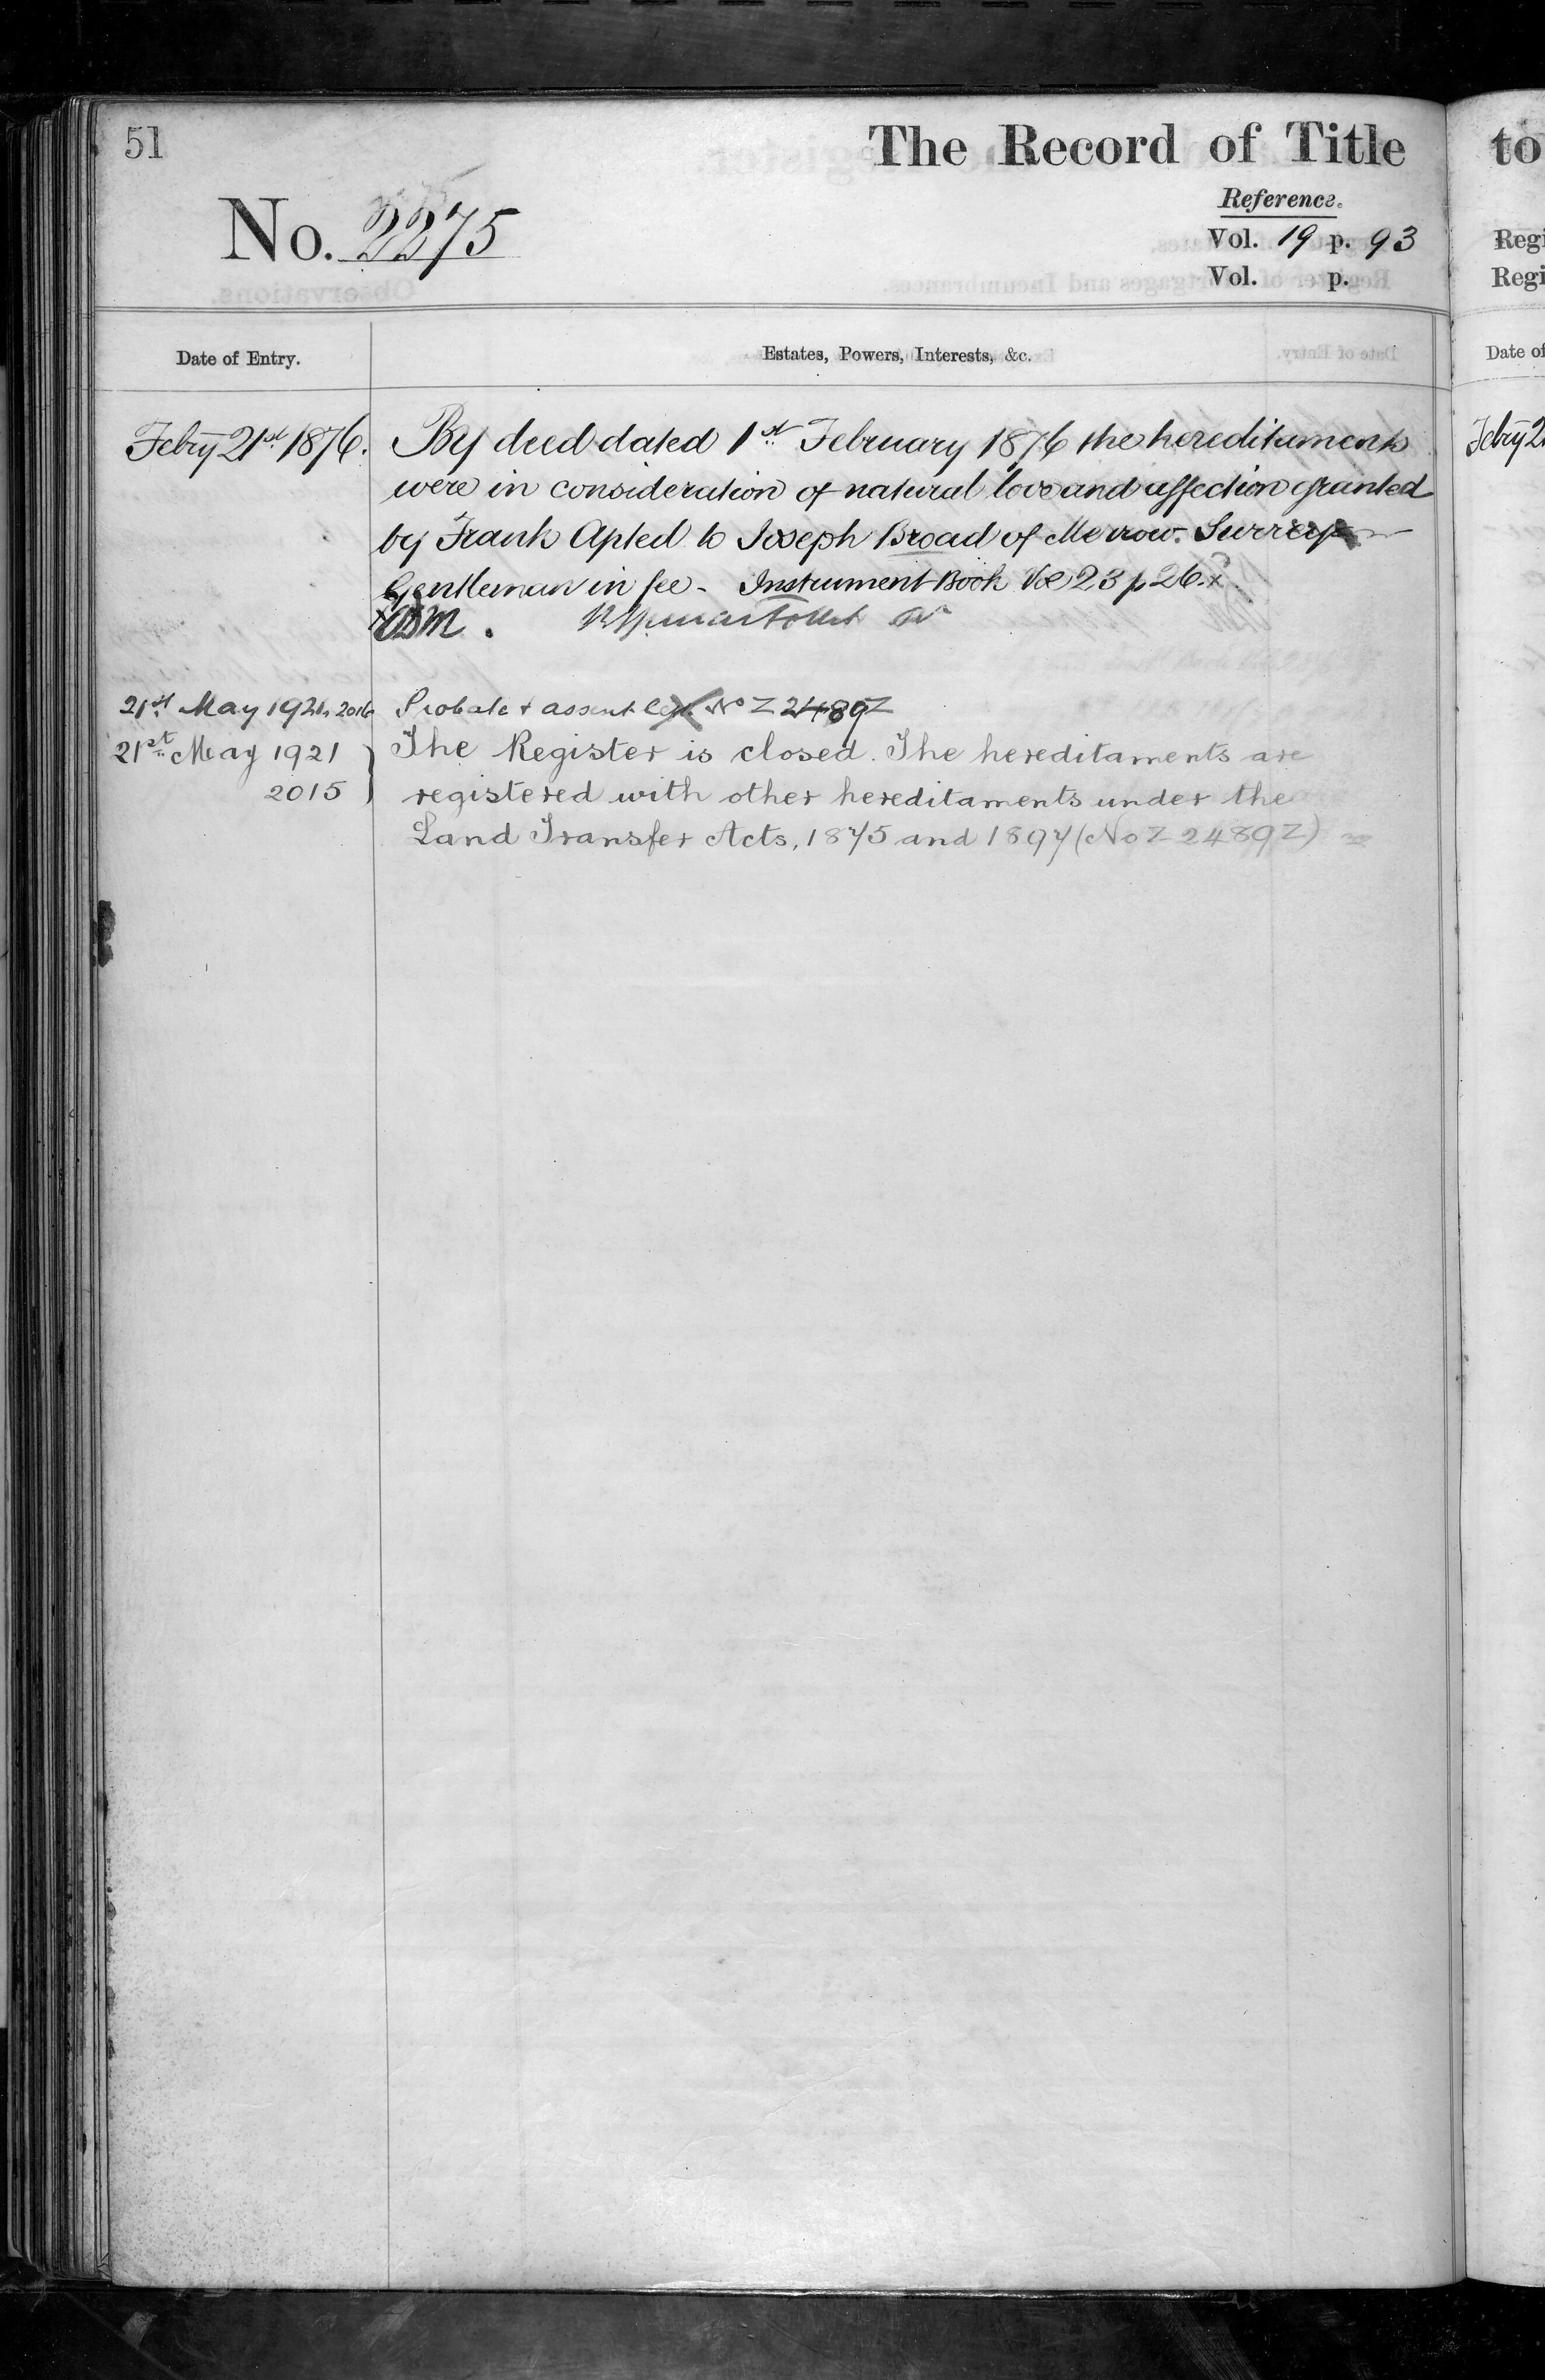 51
The Record of Title
to
Reference.
No. 2275
Vol. 19 p. 93
Regi
Vol. p.
Regi
Date of Entry.
Estates, Powers, Interests, &c.
Date of
Febry 21st 1876.
By deed dated 1st February 1876 the hereditaments
Febry 2
were in consideration of natural love and affection granted
by Frank Apted to Joseph Broad of Merrow. Surrey
Gentleman in fee - Instrument Book Vol 23 p 26. x
21st May 1921. 2016
Probate & assent No Z 2489Z
21st May 1921
The Register is closed. The hereditaments are
2015
registered with other hereditaments under the
Land Transfer Acts, 1875 and 1897 (No Z 2489Z)